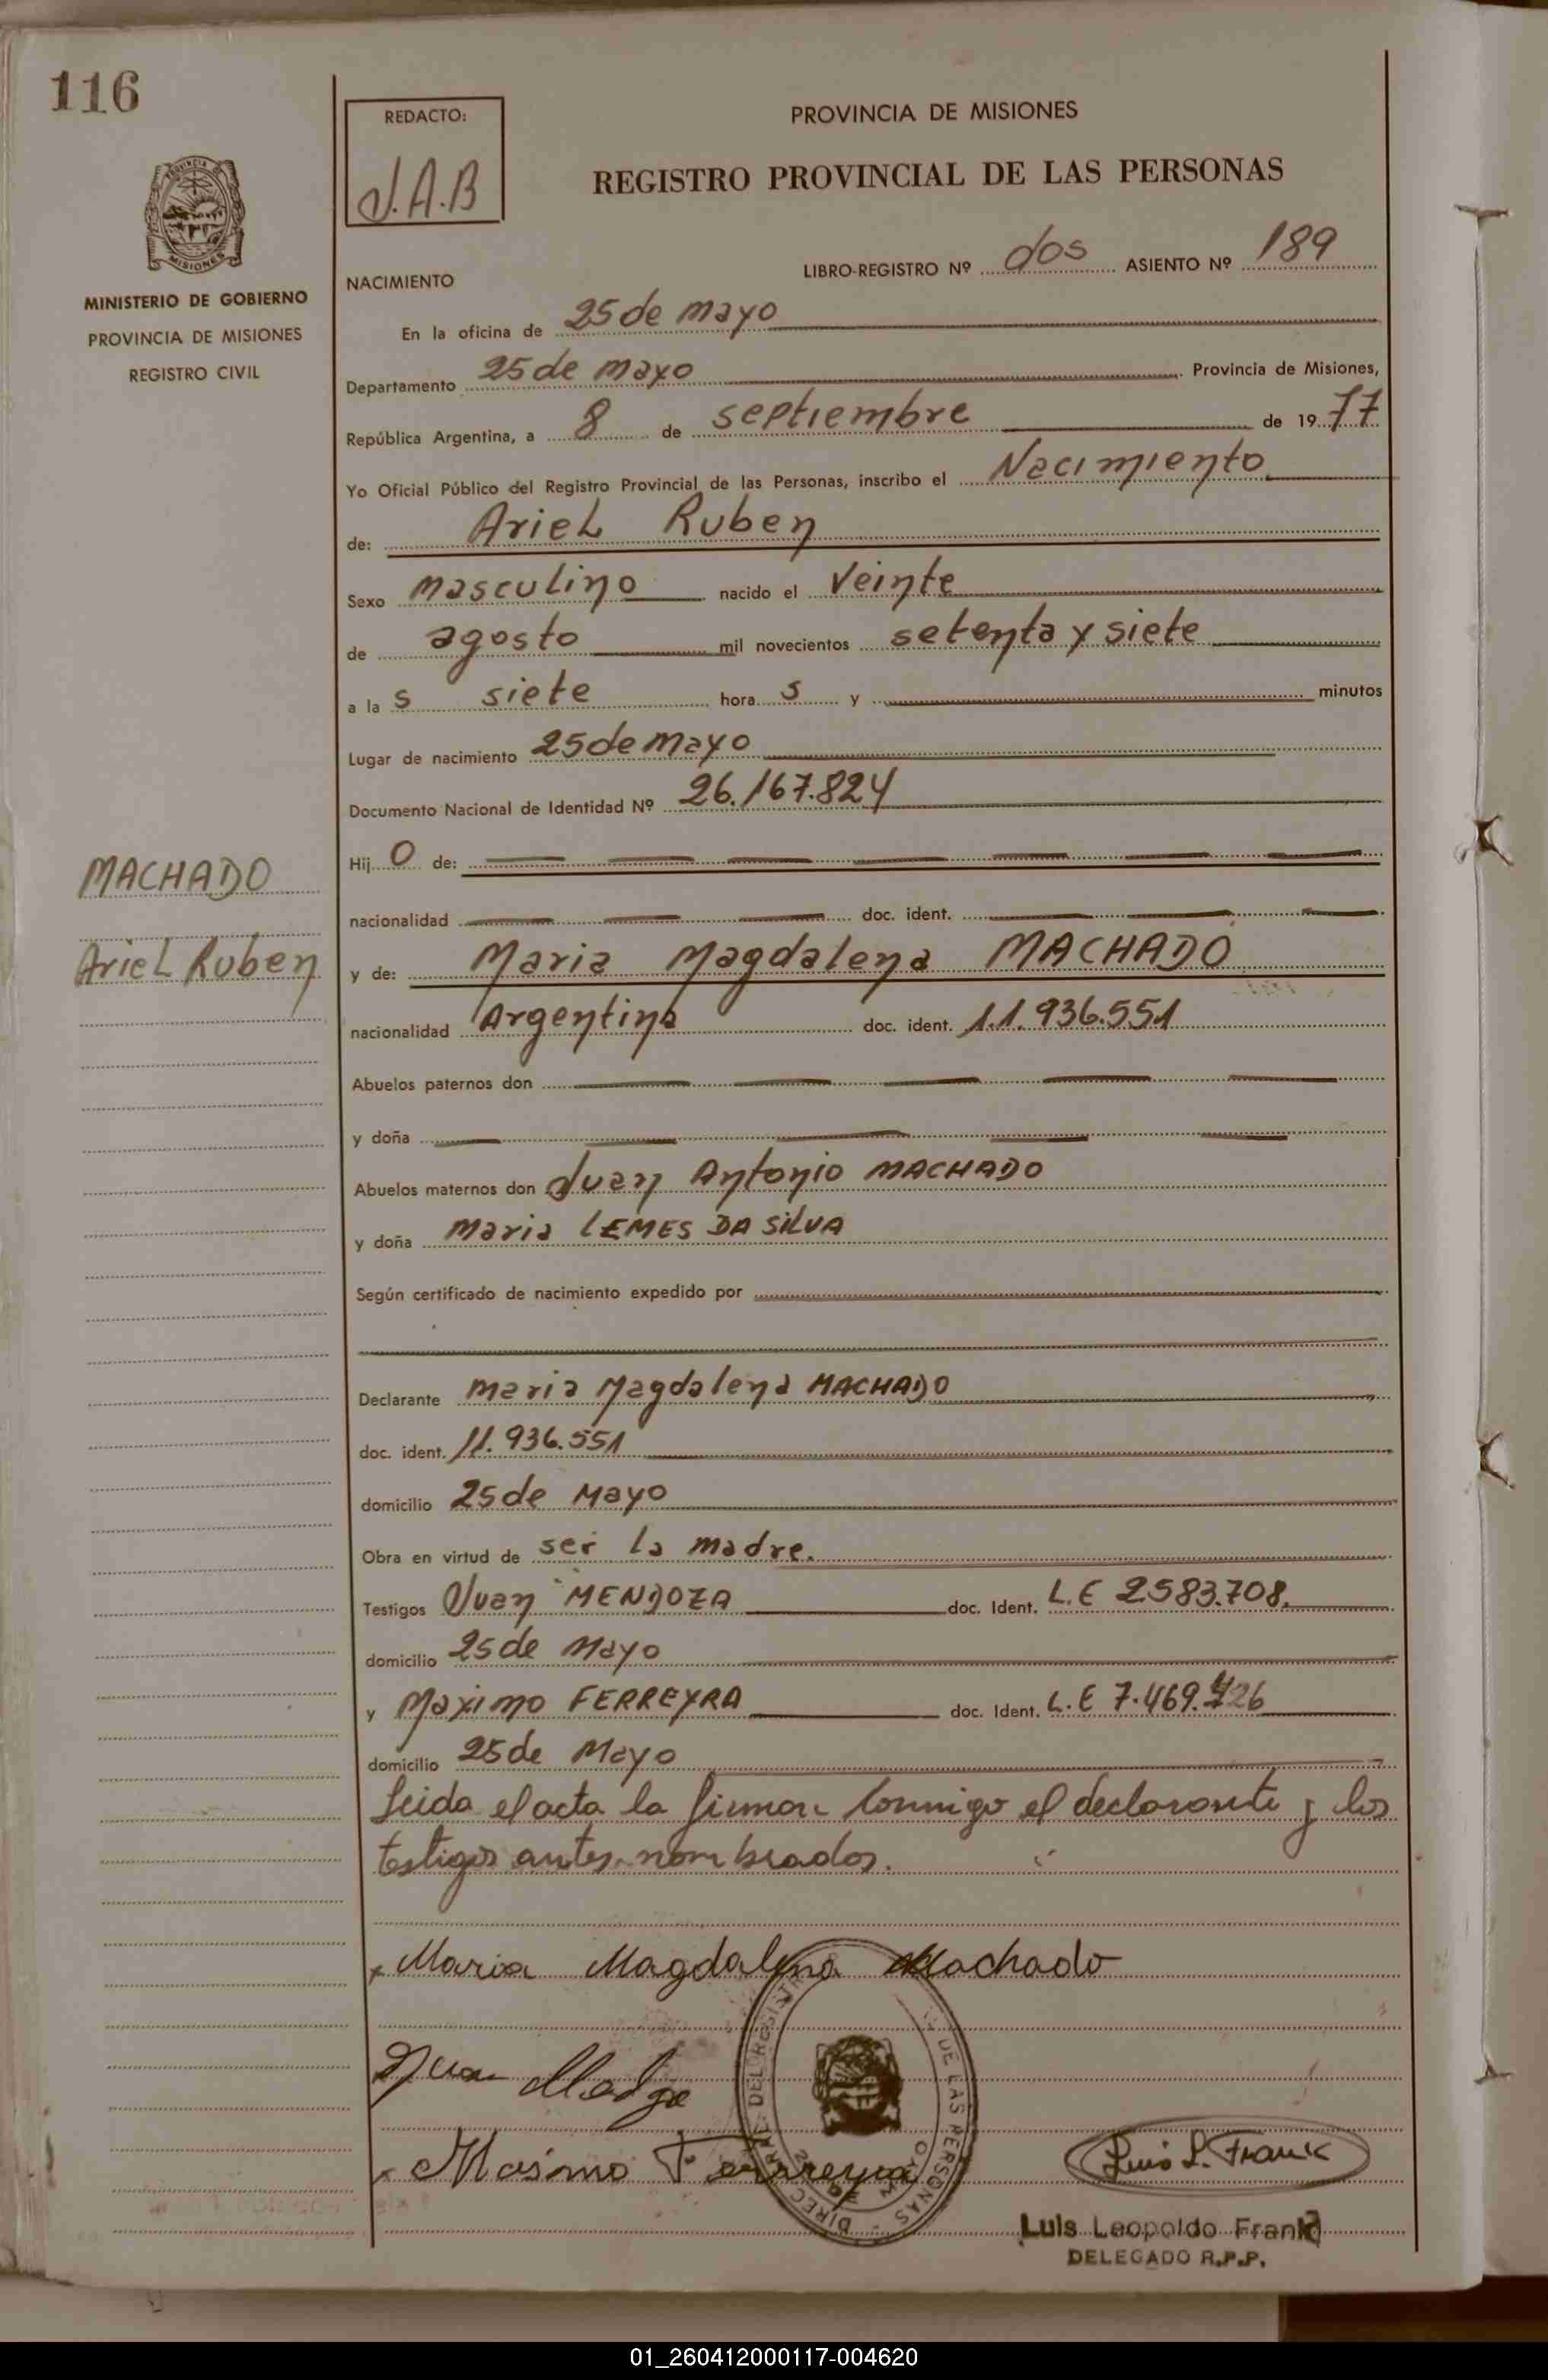 116
REDACTO:
J.A.B
PROVINCIA DE MISIONES
REGISTRO PROVINCIAL DE LAS PERSONAS
PROVINCIA
MISIONES
MINISTERIO DE GOBIERNO
PROVINCIA DE MISIONES
REGISTRO CIVIL
LIBRO-REGISTRO Nº dos ASIENTO Nº 189
NACIMIENTO
En la oficina de 25 de mayo
Departamento 25 de mayo Provincia de Misiones,
República Argentina, a 8 de septiembre de 19 77
Yo Oficial Público del Registro Provincial de las Personas, inscribo el Nacimiento
de: Ariel Ruben
Sexo masculino nacido el Veinte
de agosto mil novecientos setenta y siete
a la s siete hora s y minutos
Lugar de nacimiento 25 de mayo
Documento Nacional de Identidad Nº 26.167.824
Hij o de:
MACHADO
Ariel Ruben
nacionalidad doc. ident.
y de: Maria Magdalena MACHADO
nacionalidad Argentina doc. ident. 11.936.551
Abuelos paternos don
y doña
Abuelos maternos don Juan Antonio MACHADO
y doña Maria LEMES DA SILVA
Según certificado de nacimiento expedido por
Declarante Maria Magdalena MACHADO
doc. ident. 11.936.551
domicilio 25 de Mayo
Obra en virtud de ser la madre.
Testigos Juan MENDOZA doc. Ident. L.E 2583.708.
domicilio 25 de Mayo
y Maximo FERREYRA doc. Ident. L.E 7.469.726
domicilio 25 de Mayo
Leida el acta la firman conmigo el declarante y los
testigos antes nombrados.
x Maria Magdalena Machado
Juan
x Masimo Ferreyra
Luis L. Frank
DIREC DEL REGISTR DE LAS PERSONAS
25 DE MAYO
Luis Leopoldo Frank
DELEGADO R.P.P.
01_260412000117-004620